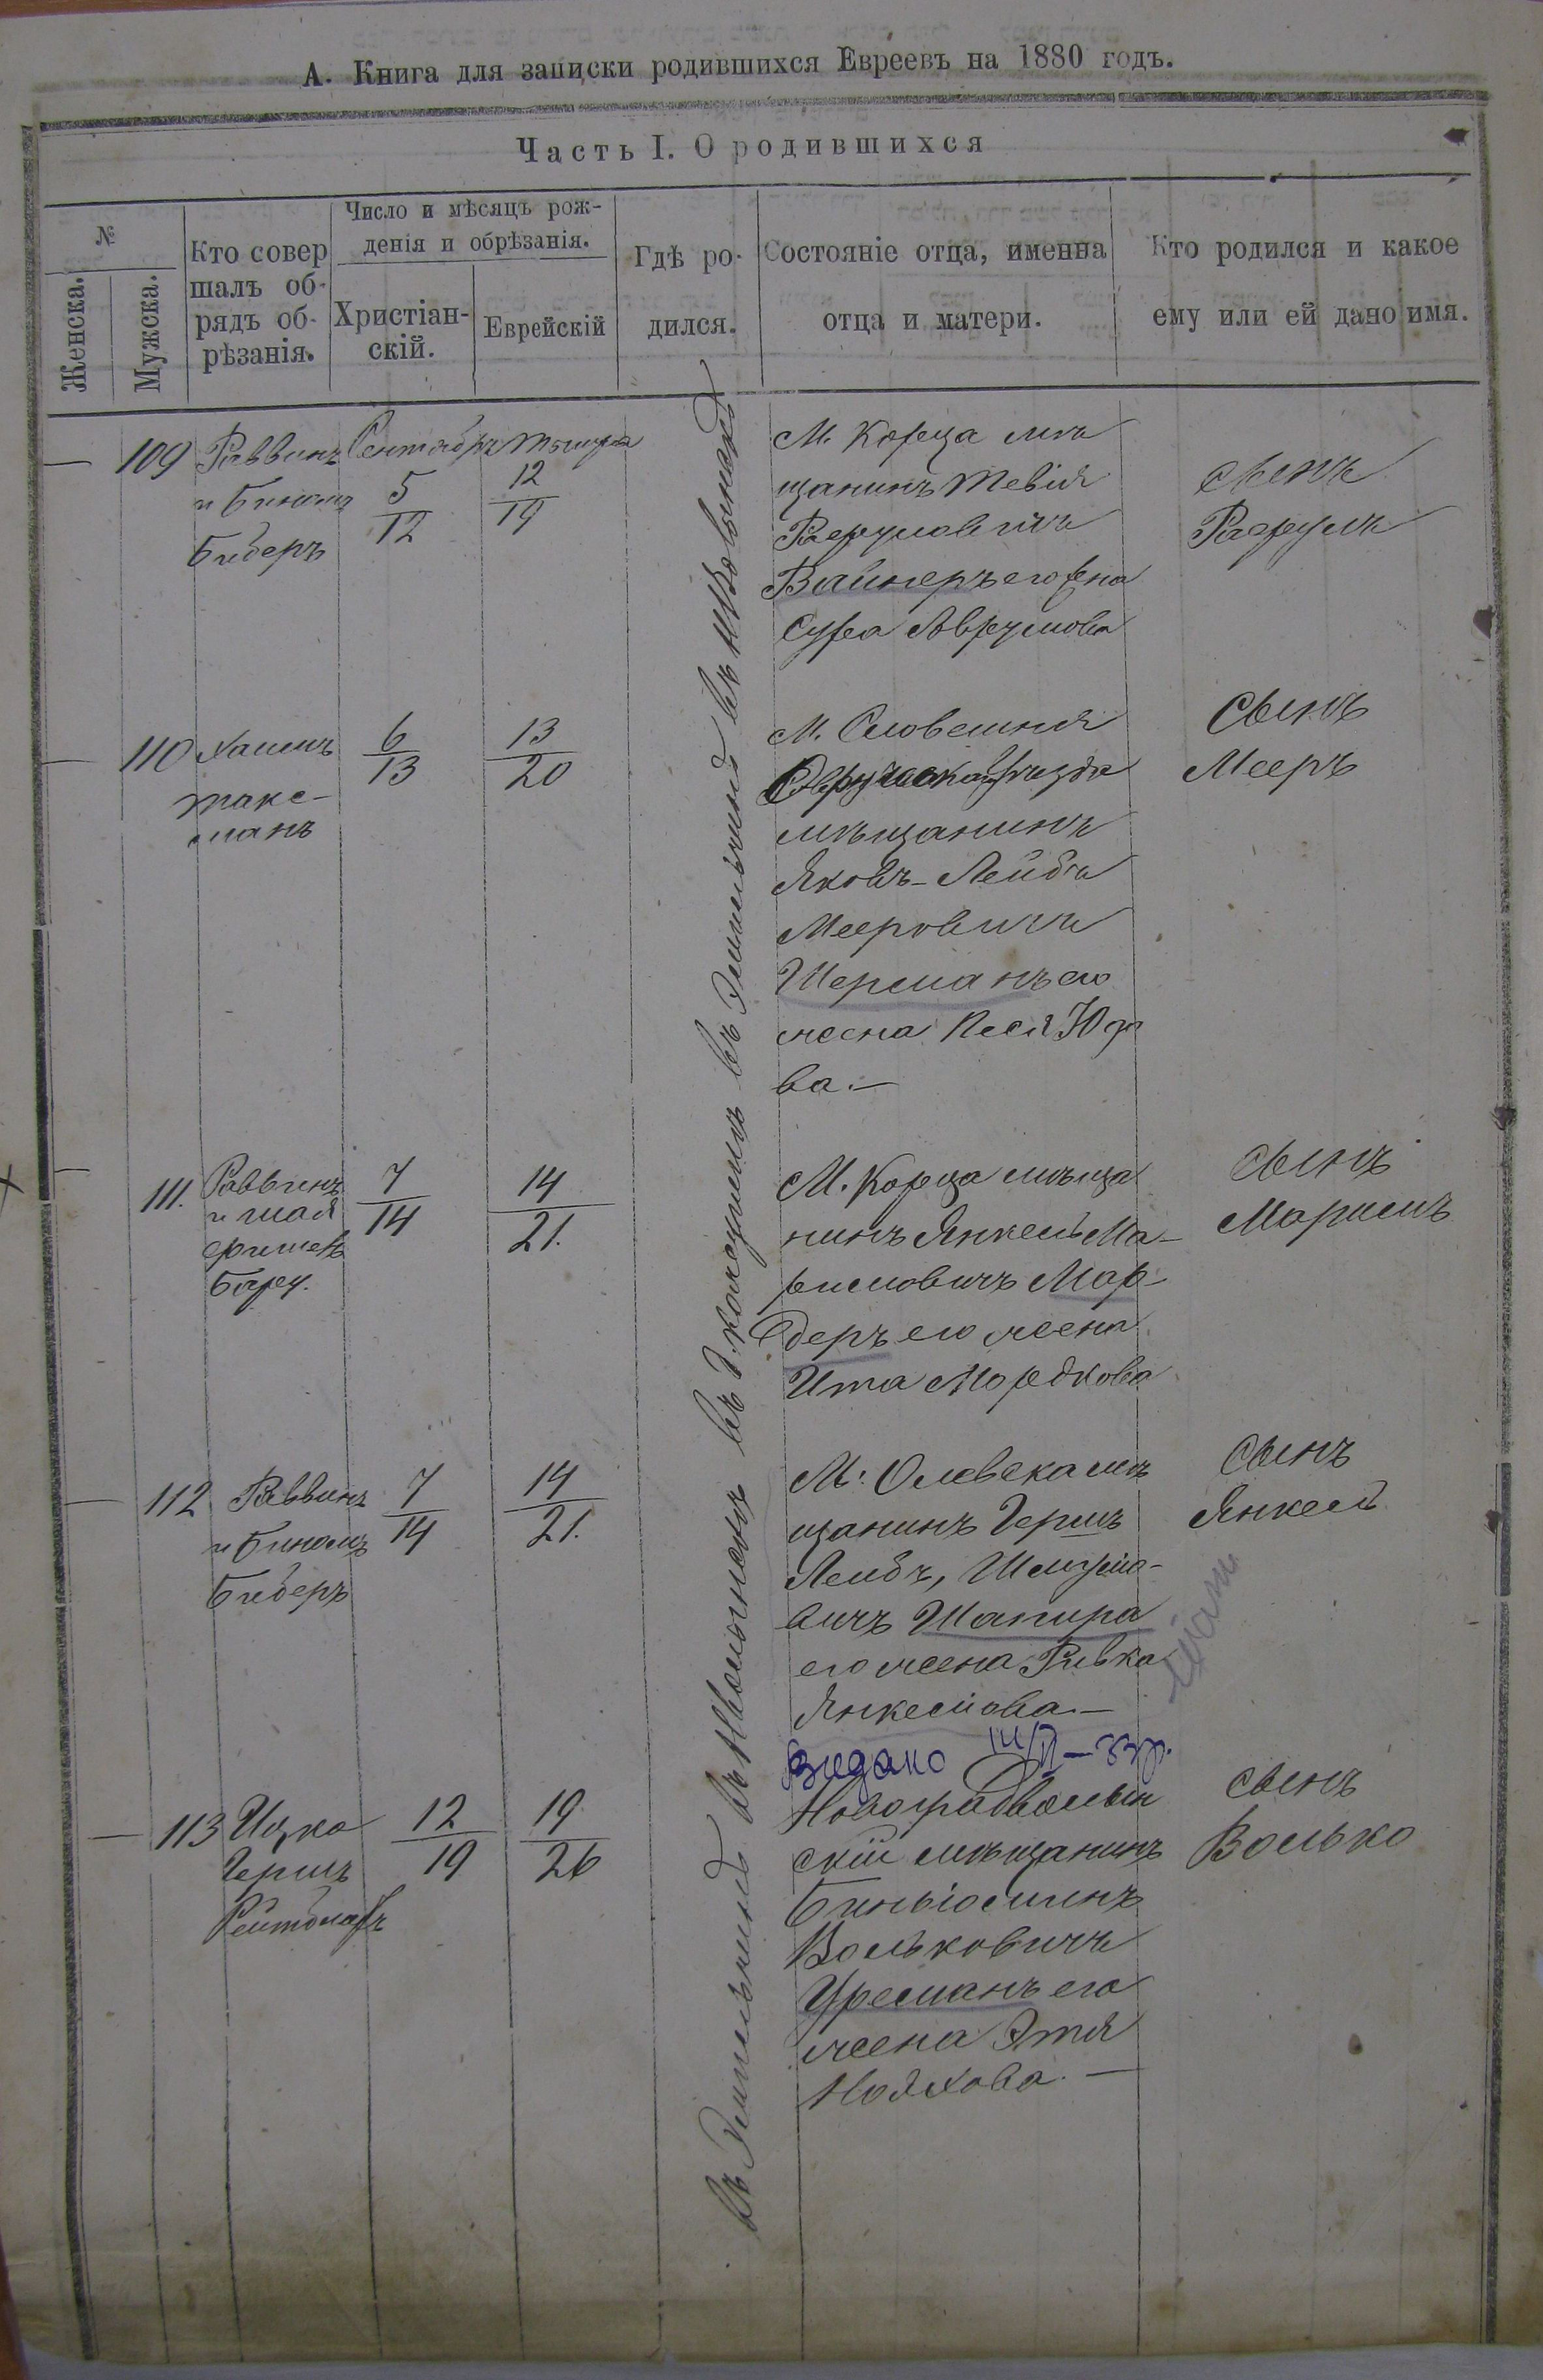 А. Книга для записки родившихся Евреевъ на 1880 годъ.
Часть I. О родившихся
№
Женска.
Мужска.
Кто совер
шалъ об-
рядъ об-
рѣзанія.
Число и мѣсяцъ рож-
денія и обрѣзанія.
Христіан-
скій.
Еврейскій
Гдѣ ро-
дился.
Состояніе отца, именна
отца и матери.
Кто родился и какое
ему или ей дано имя.
109
Раввинъ
и Биномъ
Бидеръ
Сентябръ
5
12
Тишра
12
19
М. Кореца мѣ
щанинъ Тевія
Рафуловичъ
Вайнеръ его жена
Сура Аврумова
сынъ
Рафулъ
110
Хаимъ
такс-
манъ
6
13
13
20
М. Словешня
Овручскаго уѣзда
мѣщанинъ
Яковъ-Лейба
Мееровичъ
Шерманъ его
жена Песя Юдо
ва.—
Сынъ
Мееръ
111.
Раввинъ
и шая
7
14
14
21.
М. Корца мѣща
нинъ Янкель Ма-
римовичъ Мар-
деръ его жена
Ита Мордкова
сынъ
Маримъ
112
Раввинъ
и Биномъ
Бидеръ
7
14
14
21.
М. Олевска мѣ
щанинъ Гершъ
Лейбъ, Шмуйло-
вичъ Шапира
его жена Ривка
Янкелiова.—
сынъ
Янкель
видано
113
Ицко
Гершъ
12
19
19
26
Новоградволын
скій мѣщанинъ
Биньіоминъ
Вольковичъ
Уресманъ его
жена Этя
Нояхова.—
сынъ
Волько